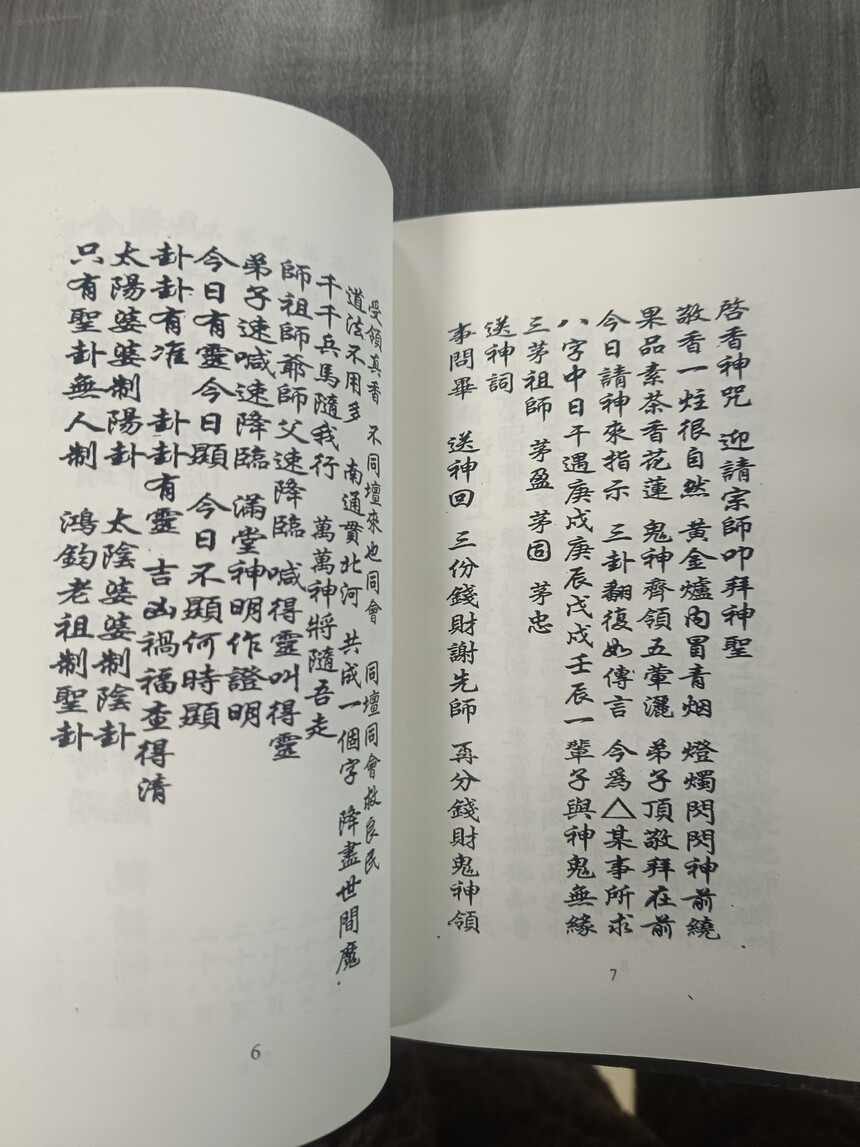 受領真香 不同壇來也同會 同壇同會救良民
道法不用多 南通貫北河 共成一個字 降盡世間魔
千千兵馬隨我行 萬萬神將隨吾走
師祖師爺師父速降臨 喊得靈叫得靈
弟子速喊速降臨 滿堂神明作證明
今日有靈今日顯 今日不顯何時顯
卦卦有准 卦卦有靈 吉凶禍福查得清
太陽婆婆制陽卦 太陰婆婆制陰卦
只有聖卦無人制 鴻鈞老祖制聖卦
6
啓香神咒 迎請宗師叩拜神聖
敬香一炷很自然 黃金爐內冒青烟 燈燭閃閃神前繞
果品素茶香花蓮 鬼神齊領五葷灑 弟子頂敬拜在前
今日請神來指示 三卦翻復如傳言 今爲△某事所求
八字中日干遇庚戌庚辰戊戌壬辰一輩子與神鬼無緣
三茅祖師 茅盈 茅固 茅忠
送神詞
事問畢 送神回 三份錢財謝先師 再分錢財鬼神領
7